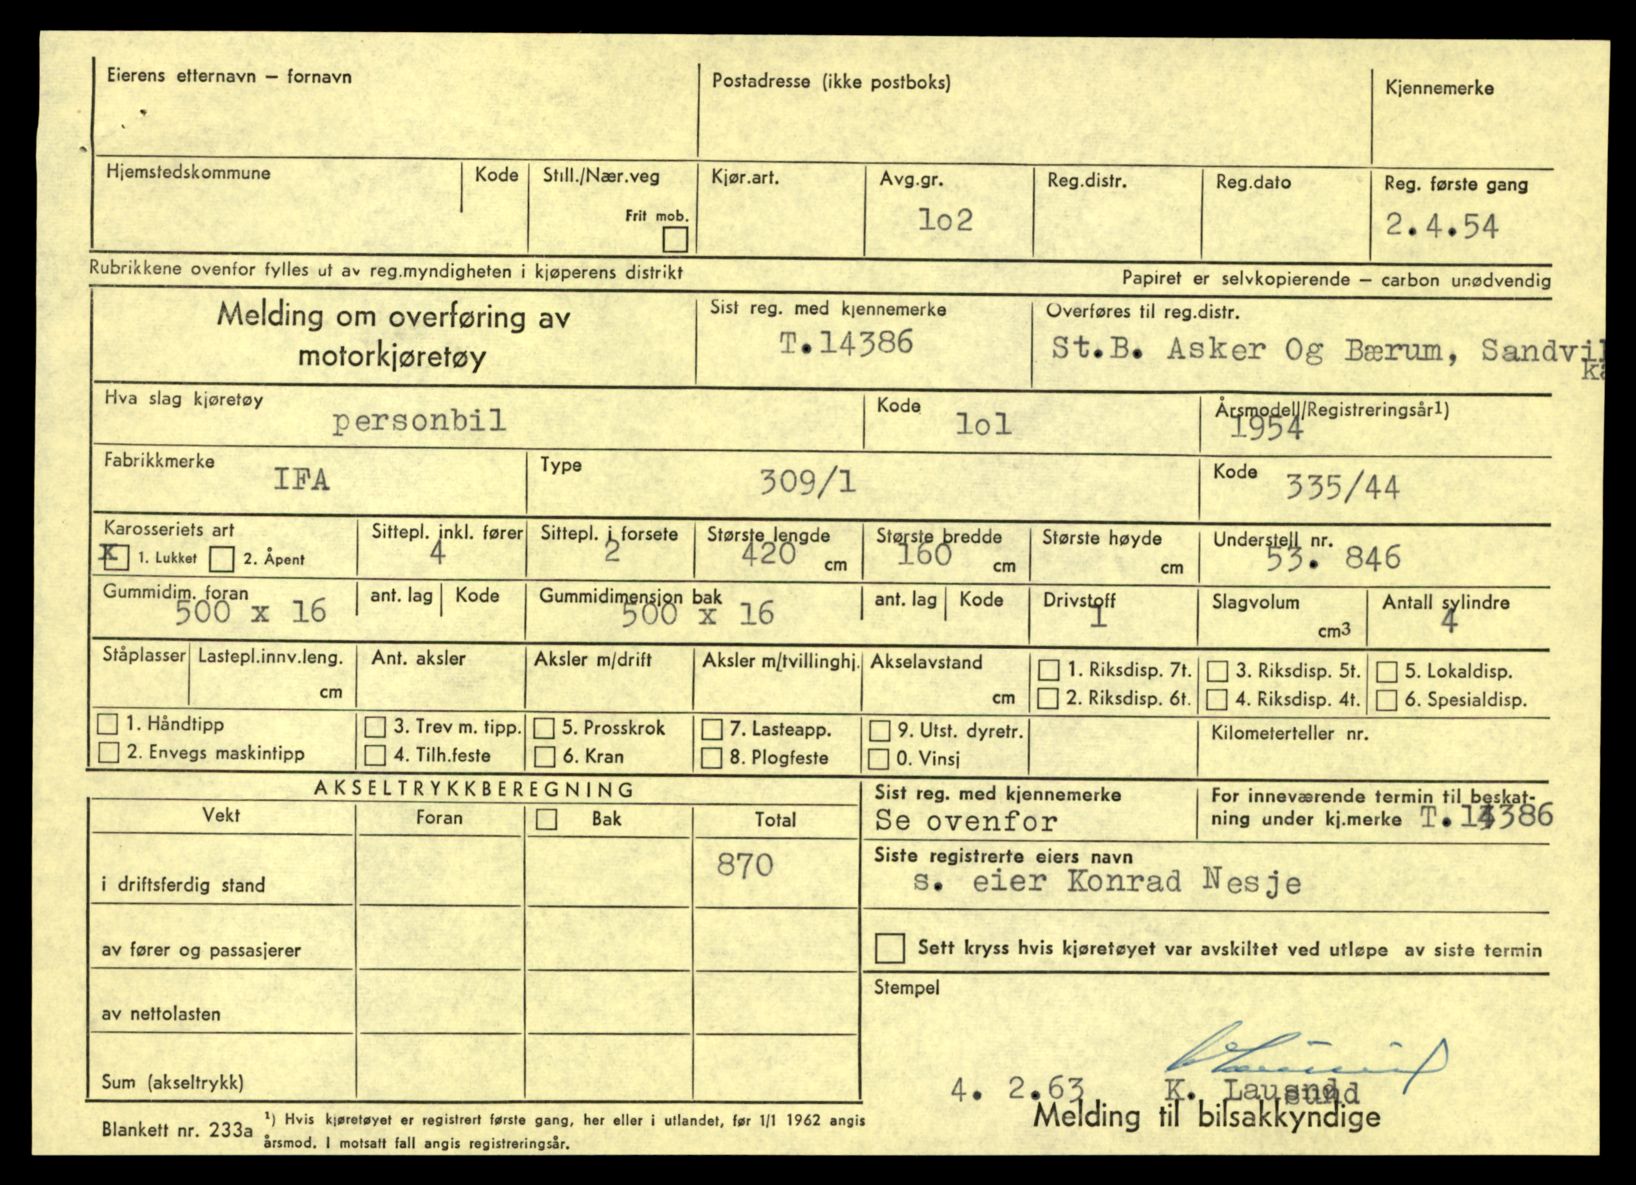 Eierens etternavn – fornavn
Postadresse (ikke postboks)
Kjennemerke
Hjemstedskommune
Kode
Still./Nær.veg
Frit mob.
Kjør.art.
Avg.gr.
lo2
Reg.distr.
Reg.dato
Reg. første gang
2.4.54
Rubrikkene ovenfor fylles ut av reg.myndigheten i kjøperens distrikt
Papiret er selvkopierende – carbon unødvendig
Melding om overføring av
motorkjøretøy
Sist reg. med kjennemerke
T.14386
Overføres til reg.distr.
St.B. Asker Og Bærum, Sandvik
ka
Hva slag kjøretøy
personbil
Kode
lol
Årsmodell/Registreringsår1)
1954
Fabrikkmerke
IFA
Type
309/1
Kode
335/44
Karosseriets art
X 1. Lukket 2. Åpent
Sittepl. inkl. fører
4
Sittepl. i forsete
2
Største lengde
420 cm
Største bredde
160 cm
Største høyde
cm
Understell nr.
53. 846
Gummidim. foran
500 x 16
ant. lag
Kode
Gummidimensjon bak
500 x 16
ant. lag
Kode
Drivstoff
1
Slagvolum
cm3
Antall sylindre
4
Ståplasser
Lastepl.innv.leng.
cm
Ant. aksler
Aksler m/drift
Aksler m/tvillinghj.
Akselavstand
cm
1. Riksdisp. 7t.
2. Riksdisp. 6t.
3. Riksdisp. 5t.
4. Riksdisp. 4t.
5. Lokaldisp.
6. Spesialdisp.
1. Håndtipp
2. Envegs maskintipp
3. Trev m. tipp.
4. Tilh.feste
5. Prosskrok
6. Kran
7. Lasteapp.
8. Plogfeste
9. Utst. dyretr.
0. Vinsj
Kilometerteller nr.
AKSELTRYKKBEREGNING
Vekt
Foran
Bak
Total
i driftsferdig stand
870
av fører og passasjerer
av nettolasten
Sum (akseltrykk)
Sist reg. med kjennemerke
Se ovenfor
For inneværende termin til beskat-
ning under kj.merke T.14386
Siste registrerte eiers navn
s. eier Konrad Nesje
Sett kryss hvis kjøretøyet var avskiltet ved utløpe av siste termin
Stempel
4. 2.63 K. Lausund
Melding til bilsakkyndige
Blankett nr. 233a
1) Hvis kjøretøyet er registrert første gang, her eller i utlandet, før 1/1 1962 angis
årsmod. I motsatt fall angis registreringsår.